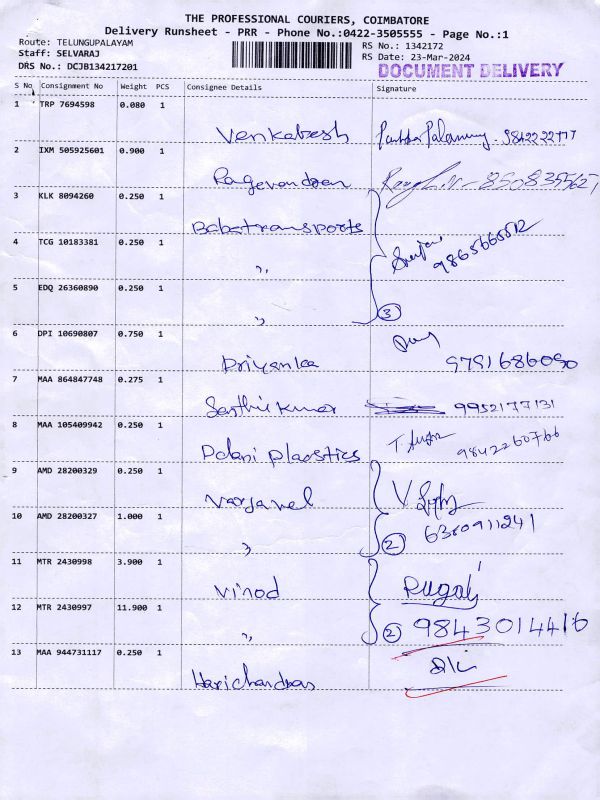 THE PROFESSIONAL COURIERS, COIMBATORE
Delivery Runsheet - PRR - Phone No.:0422-3505555 - Page No.:1
Route: TELUNGUPALAYAM
Staff: SELVARAJ
DRS No.: DCJB134217201
RS No.: 1342172
RS Date: 23-Mar-2024
DOCUMENT DELIVERY
S No Consignment No Weight PCS Consignee Details Signature
1 TRP 7694598 0.080 1
Venkatesh 9842222777
2 IXM 505925601 0.900 1
Ragavendran
3 KLK 8094260 0.250 1
Babatransports
4 TCG 10183381 0.250 1
" 9865665512
5 EDQ 26360890 0.250 1
" 3
6 DPI 10690807 0.750 1
Priyanka 9791686090
7 MAA 864847748 0.275 1
Senthil Kumar 9952177131
8 MAA 105409942 0.250 1
Palani plaestics 9842260766
9 AMD 28200329 0.250 1
10 AMD 28200327 1.000 1
" 2 6380911241
11 MTR 2430998 3.900 1
Vinod
12 MTR 2430997 11.900 1
" 2 9843014416
13 MAA 944731117 0.250 1
Harichandran